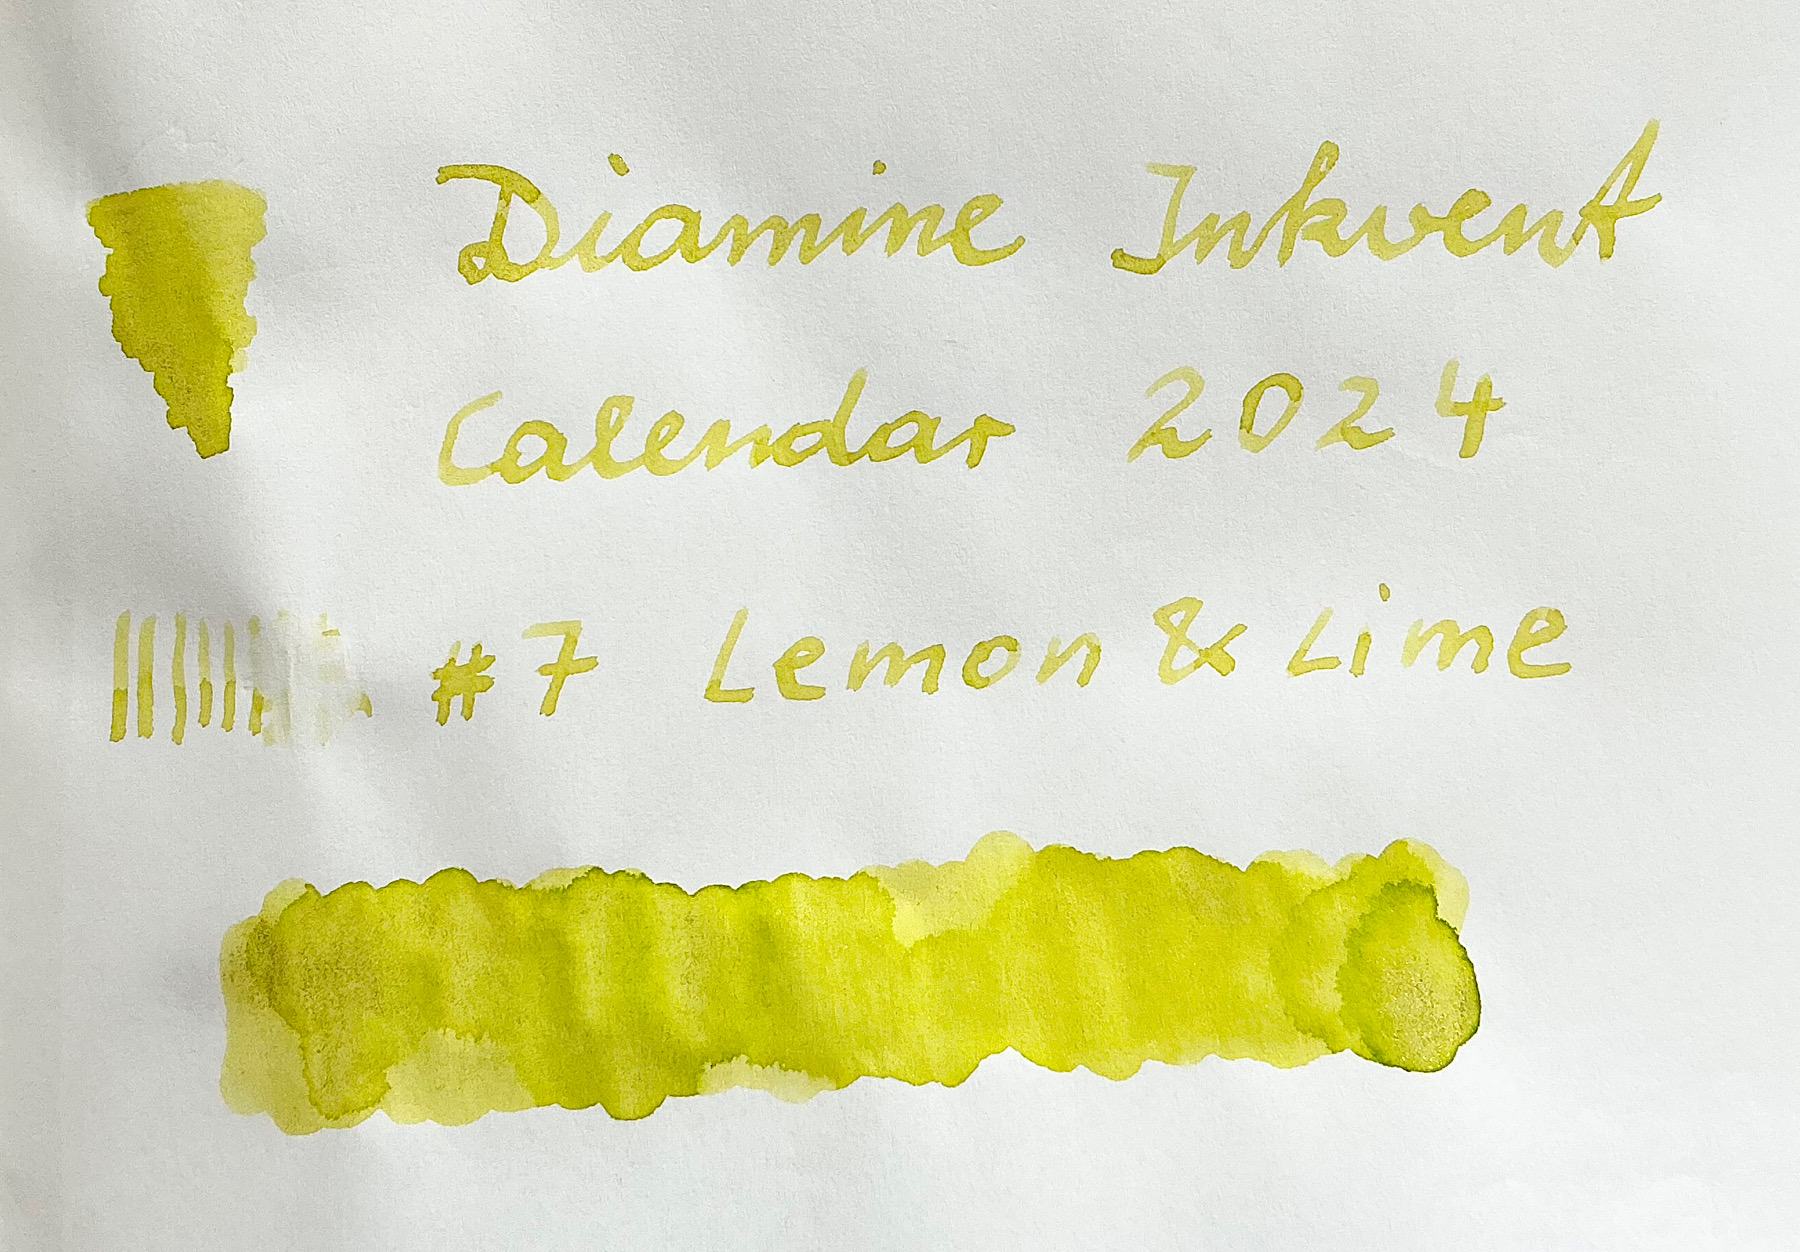 Diamine Inkvent
Calendar 2024
#7 Lemon & Lime